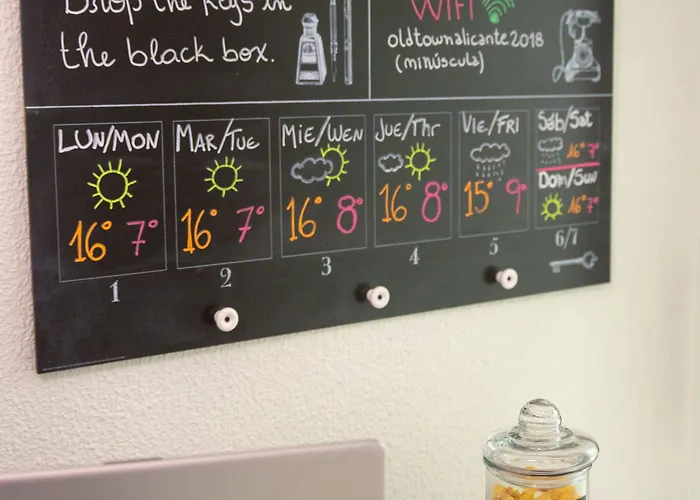 Drop the keys in
the black box.
WIFI
oldtownalicante2018
(minúscula)
LUN/MON
16° 7°
1
MAR/TUE
16° 7°
2
MIE/WEN
16° 8°
3
JUE/Thr
16° 8°
4
Vie/FRI
15° 9°
5
Sáb/Sat
16° 7°
Dom/Sun
16° 7°
6/7